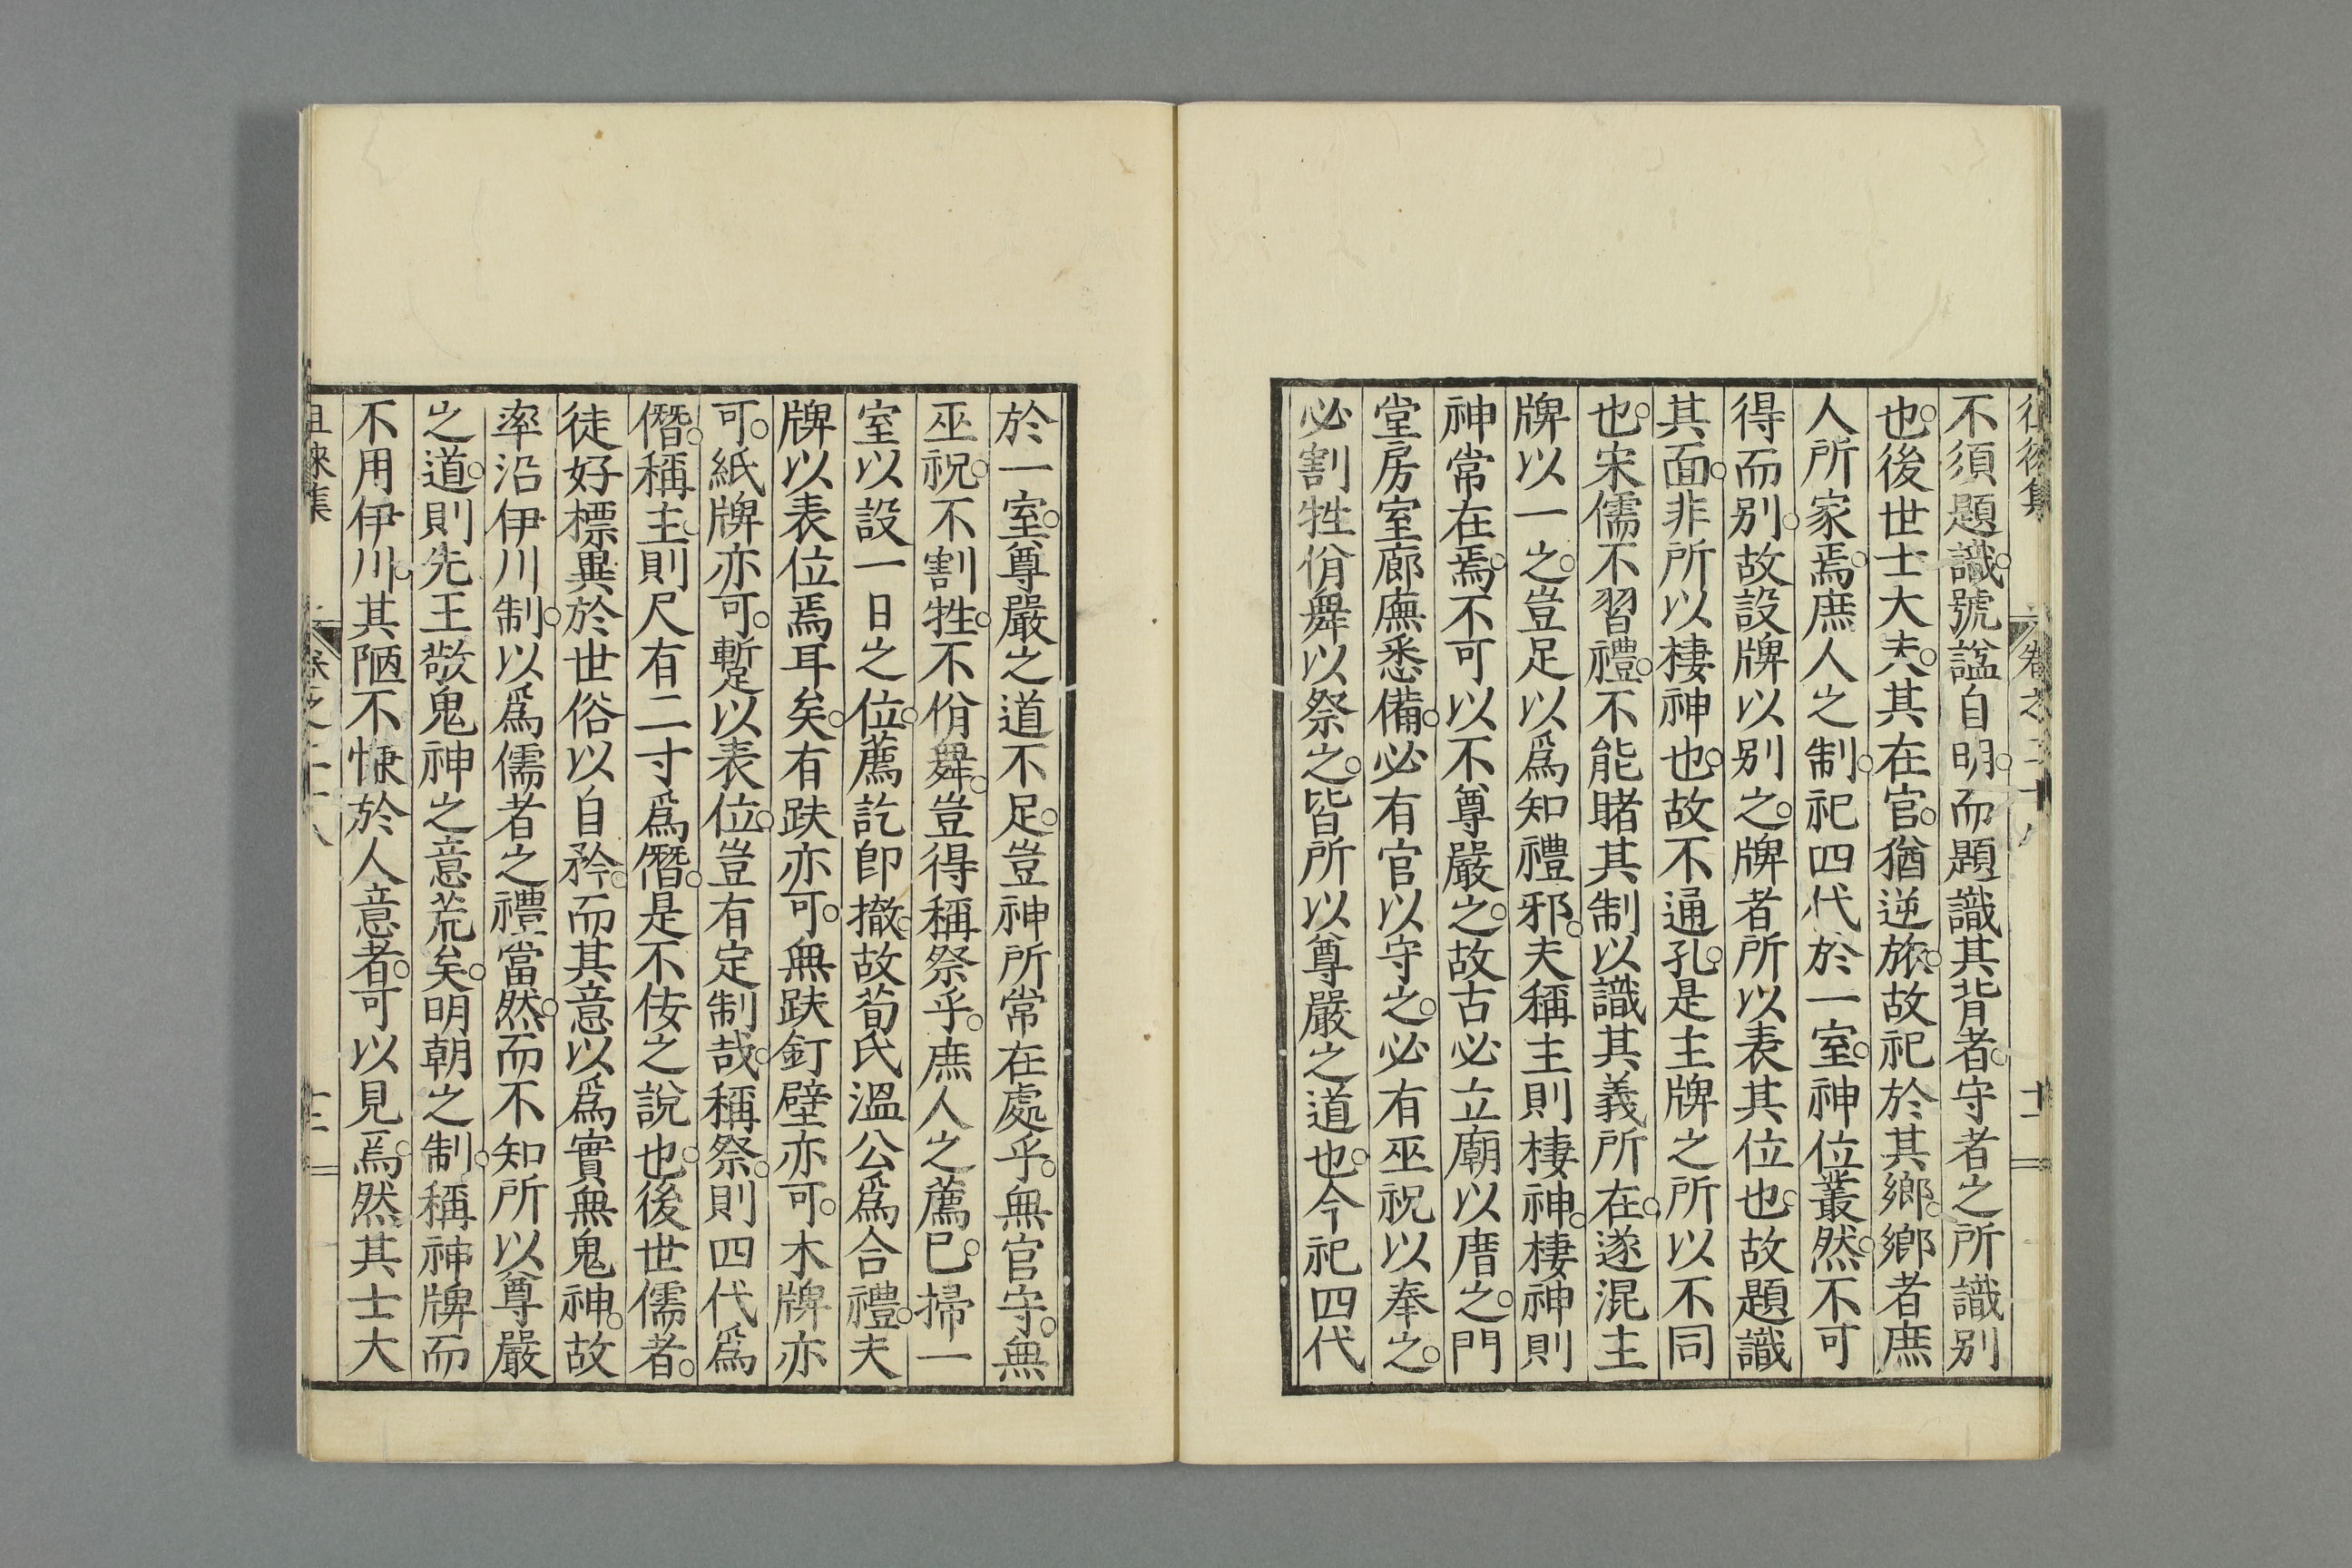 不須題識。號諡自明。而題識其背者。守者之所識別
也。後世士大夫。其在官。猶逆旅。故祀於其鄉。鄉者庶
人所家焉。庶人之制。祀四代於一室。神位叢然。不可
得而別。故設牌以別之。牌者所以表其位也。故題識
其面。非所以棲神也。故不通孔。是主牌之所以不同
也。宋儒不習禮。不能睹其制以識其義所在。遂混主
牌以一之。豈足以爲知禮邪。夫稱主則棲神。棲神則
神常在焉。不可以不尊嚴之。故古必立廟以庿之。門
堂房室廊廡悉備。必有官以守之。必有巫祝以奉之。
必割牲佾舞以祭之。皆所以尊嚴之道也。今祀四代
於一室。尊嚴之道不足。豈神所常在處乎。無官守。無
巫祝。不割牲。不佾舞。豈得稱祭乎。庶人之薦已。掃一
室以設一日之位。薦訖卽撤。故荀氏溫公爲合禮。夫
牌以表位焉耳矣。有趺亦可。無趺釘壁亦可。木牌亦
可。紙牌亦可。暫以表位。豈有定制哉。稱祭。則四代爲
僭。稱主。則尺有二寸爲僭。是不佞之說也。後世儒者。
徒好標異於世俗以自矜。而其意以爲實無鬼神。故
率沿伊川制。以爲儒者之禮當然。而不知所以尊嚴
之道。則先王敬鬼神之意荒矣。明朝之制。稱神牌而
不用伊川。其陋不慊於人意者。可以見焉。然其士大
徠集 卷之二十八 十二